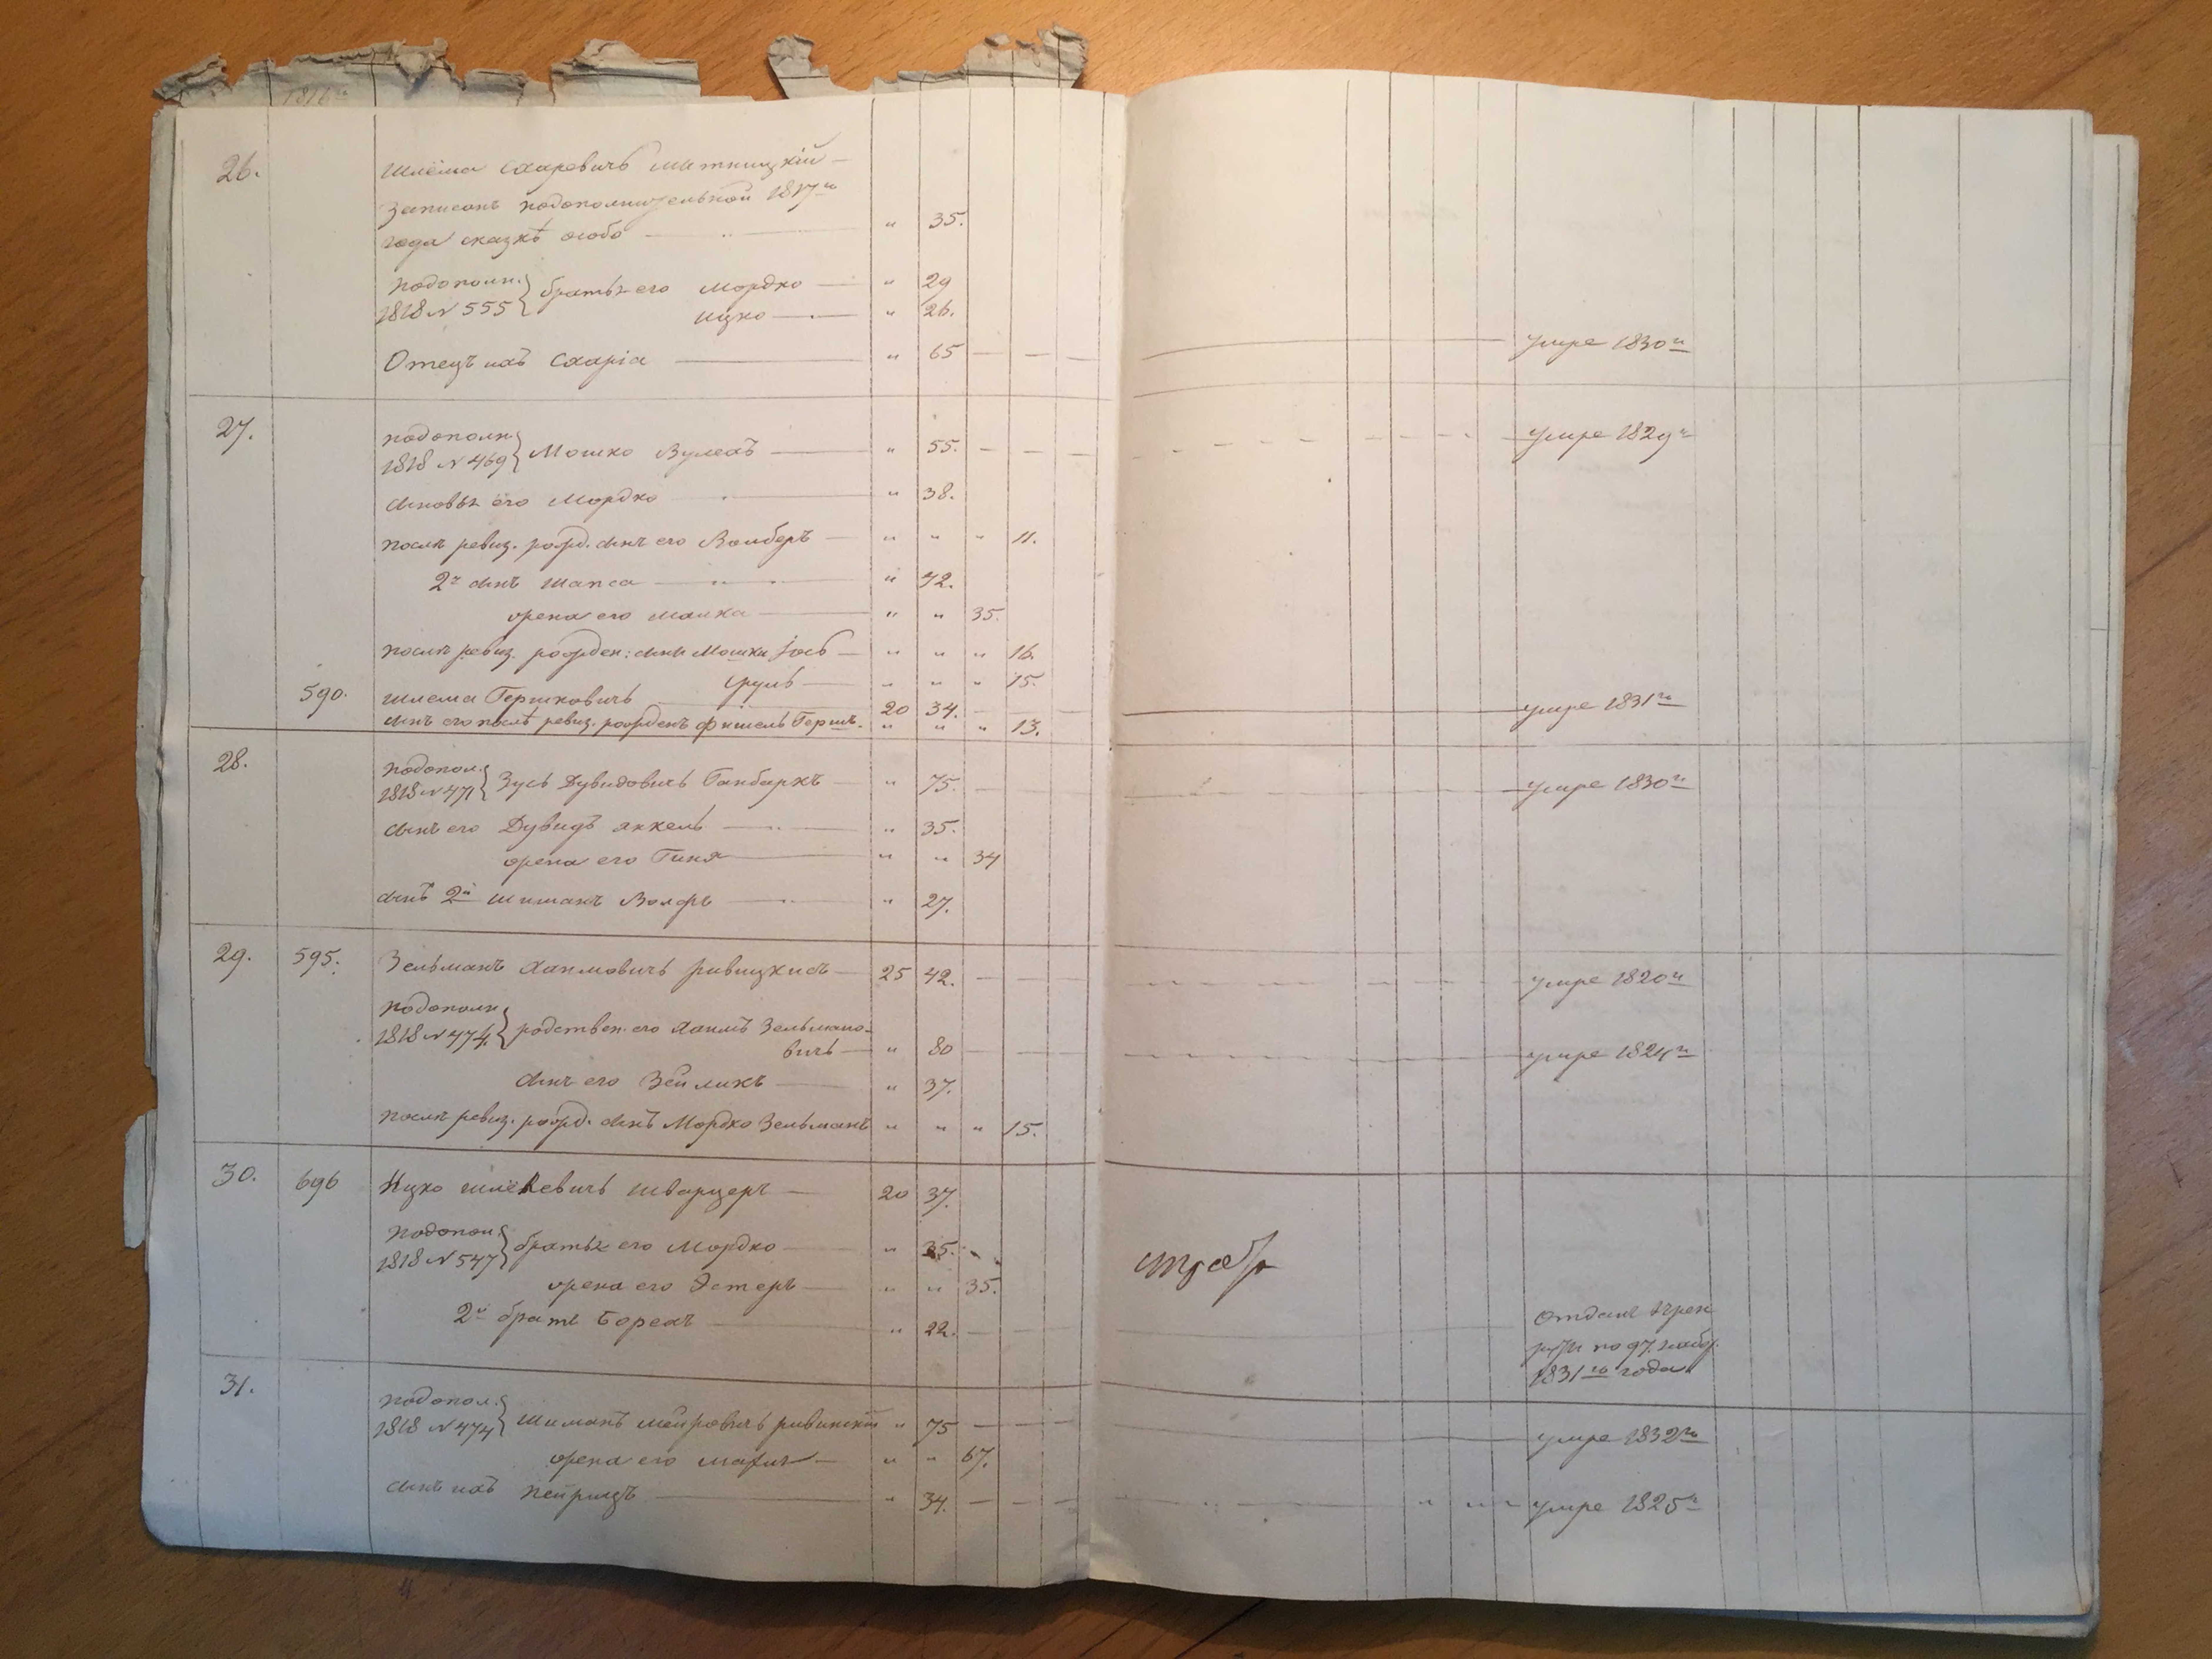 1816го
26. Шлёма Сахаревичъ Митницкій —
записанъ подополнительной 1817го
года сказкѣ особо — " 35.
подополн. 1818 № 555 } братья его Мордко — " 29
Ицко — " 26.
Отецъ ихъ Сахаріа — " 65 — — — умре 1830го
27. подополн. 1818 № 469 } Мошко Вулехъ — " 55. — — — умре 1829го
сыновья его Мордко — " 38.
послѣ ревиз. рожд. сынъ его Вольберъ — " " " 11.
2й сынъ Шапса — " 42.
жена его Малка — " " 35.
послѣ ревиз. рожден: сыны Мошки Іось — " " " 16.
Сруль — " " " 15.
590. Шлема Гершковичъ 20 34. — умре 1831го
сынъ его послѣ ревиз. рожденъ Фишель Герш. " " " 13.
28. подопол. 1818 № 471 } Зусь Дувидовичъ Ганбаркъ — " 75. — умре 1830го
сынъ его Дувидъ Янкель — " 35.
жена его Гиня — " " 34
сынъ 2й Шиманъ Волфъ — " 27.
29. 595. Зельманъ Хаимовичъ — 25 42. — умре 1820го
подополн. 1818 № 474. } родствен. его Хаимъ Зельмано-
вичъ — " 80 — умре 1824го
сынъ его Зейликъ — " 37.
послѣ ревиз. рожд. сынъ Мордко Зельманъ " " " 15.
30. 696 Ицко Шварцеръ — 20 37.
подопол. 1818 № 547 } братья его Мордко — " 35.
жена его Эстеръ — " " 35.
2й братъ Борехъ — " 22. —
1831го года
31. подопол. 1818 № 474 } Шиманъ Мейровичъ " 75 — — — умре 1832го
жена его — " " 67.
сынъ ихъ — " 34. — — — умре 1825го